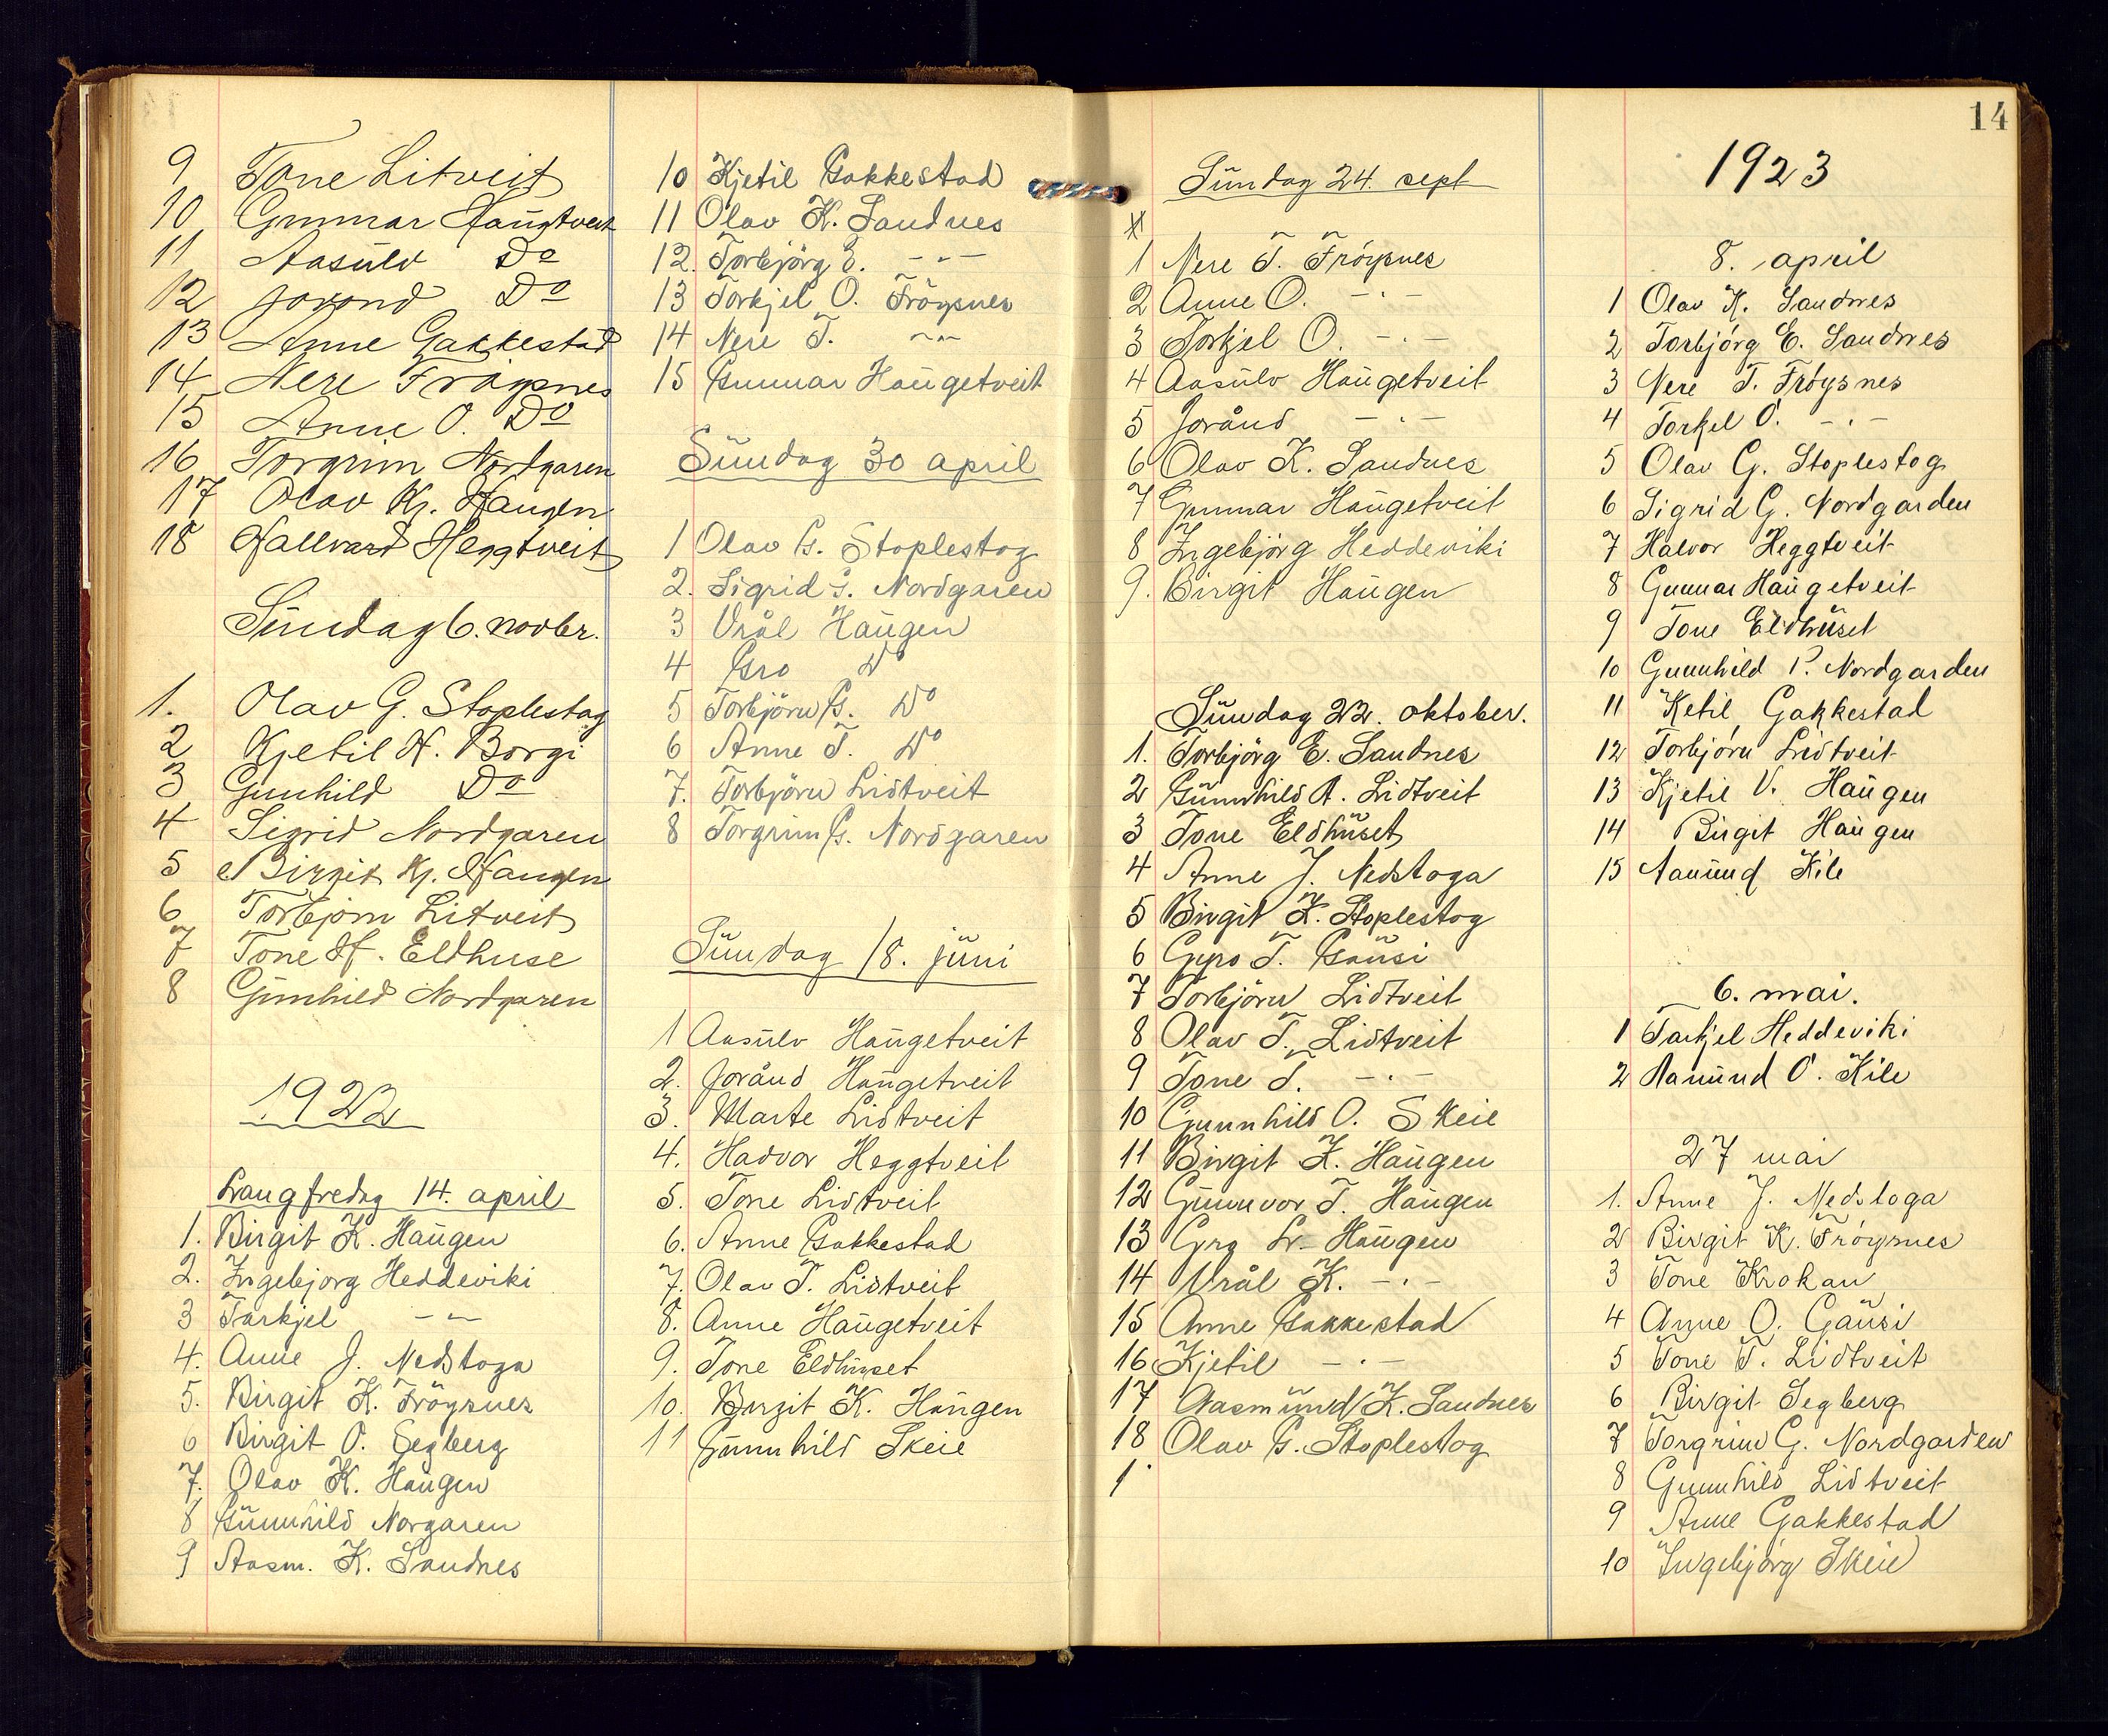 9 Tone Litveit
10 Gunnar Haŭgtveit
11 Aasŭlv Do
12 Jorond Do
13 Anne Gakkestad
14 Nere Fröysnes
15 Anne O. Do
16 Torgrim Nordgaren
17 Olav Kj. Haugen
18 Hallvard Heggtveit
Sŭndag 6. novbr.
1. Olav G. Stoplestog
2 Kjetil H. Borgi
3 Gunhild Do
4 Sigrid Nordgaren
5 Birgit Kj. Haugen
6 Torbjörn Litveit
7 Tone H. Eldhuse
8 Gŭnhild Nordgaren
1922
Langfredag 14. april
1. Birgit K. Haŭgen
2. Ingebjorg Heddeviki
3 Tarkjel -"-
4. Anne J. Nedstoga
5. Birgit K. Fröysnes
6 Birgit O. Segberg
7. Olav K. Haŭgen
8 Gŭnnhild Norgaren
9 Aasm. K. Sandnes
10 Kjetil Gakkestad
11 Olav K. Sandnes
12. Torbjörg E. -"-
13 Torkjel O. Fröysnes
14 Nere T. -"-
15 Gunnar Haŭgetveit
Sŭndag 30 april
1 Olav G. Stoplestog
2. Sigrid G. Nordgaren
3 Vrål Haŭgen
4 Gro Do
5 Torbjörn G. Do
6 Anne T. Do
7. Torbjörn Lidtveit
8 Torgrim G. Nordgaren
Sŭndag 18. jŭni
1 Aasŭlv Haŭgetveit
2. Joränd Haŭgetveit
3. Marte Lidtveit
4. Hadvor Heggtveit
5. Tone Lidtveit
6. Anne Gakkestad
7. Olav T. Lidtveit
8. Anne Haŭgetveit
9. Tone Eldhŭset
10. Birgit K. Haŭgen
11 Gŭnnhild Skeie
14
Sŭndag 24. sept
1 Nere T. Fröysnes
2 Anne O. -"-
3 Torkjel O. -"-
4 Aasŭlv Haŭgetveit
5 Jorånd -"-
6 Olav K. Sandnes
7 Gunnar Haŭgetveit
8 Ingebjörg Heddeviki
9. Birgit Haŭgen
Sŭndag 22. oktober.
1. Torbjörg E. Sandnes
2 Gŭnnhild A. Lidtveit
3 Tone Eldhŭset
4 Anne J. Nedstoga
5 Birgit K. Stoplestog
6 Gyro T. Gaŭsi
7 Torbjörn Lidtveit
8 Olav T. Lidtveit
9 Tone T. -"-
10 Gunnhild O. Skeie
11 Birgit K. Haŭgen
12 Gŭnnvor T. Haŭgen
13 Gro L. Haŭgen
14 Vrål K. -"-
15 Anne Gakkestad
16 Kjetil -"-
17 Aasmŭnd K. Sandnes
18 Olav G. Stoplestog
1
1923
8. april
1 Olav K. Sandnes
2 Torbjörg E. Sandnes
3 Nere T. Fröysnes
4 Torkel O. -"-
5 Olav G. Stoplestog
6 Sigrid G. Nordgarden
7 Halvor Heggtveit
8 Gunnar Haŭgetveit
9 Tone Eldhŭset
10 Gunnhild P. Nordgarden
11 Ketil Gakkestad
12 Torbjörn Lidtveit
13 Kjetil V. Haŭgen
14 Birgit Haŭgen
15 Aamŭnd Kile
6. mai.
1 Tarkjel Heddeviki
2 Aamŭnd O. Kile
27 mai
1. Anne J. Nedstoga
2 Birgit K. Fröysnes
3 Tone Krokan
4 Anne O. Gaŭsi
5 Tone T. Lidtveit
6 Birgit Segberg
7 Torgrim G. Nordgarden
8 Gunnhild Lidtveit
9 Anne Gakkestad
10 Ingebjörg Skeie